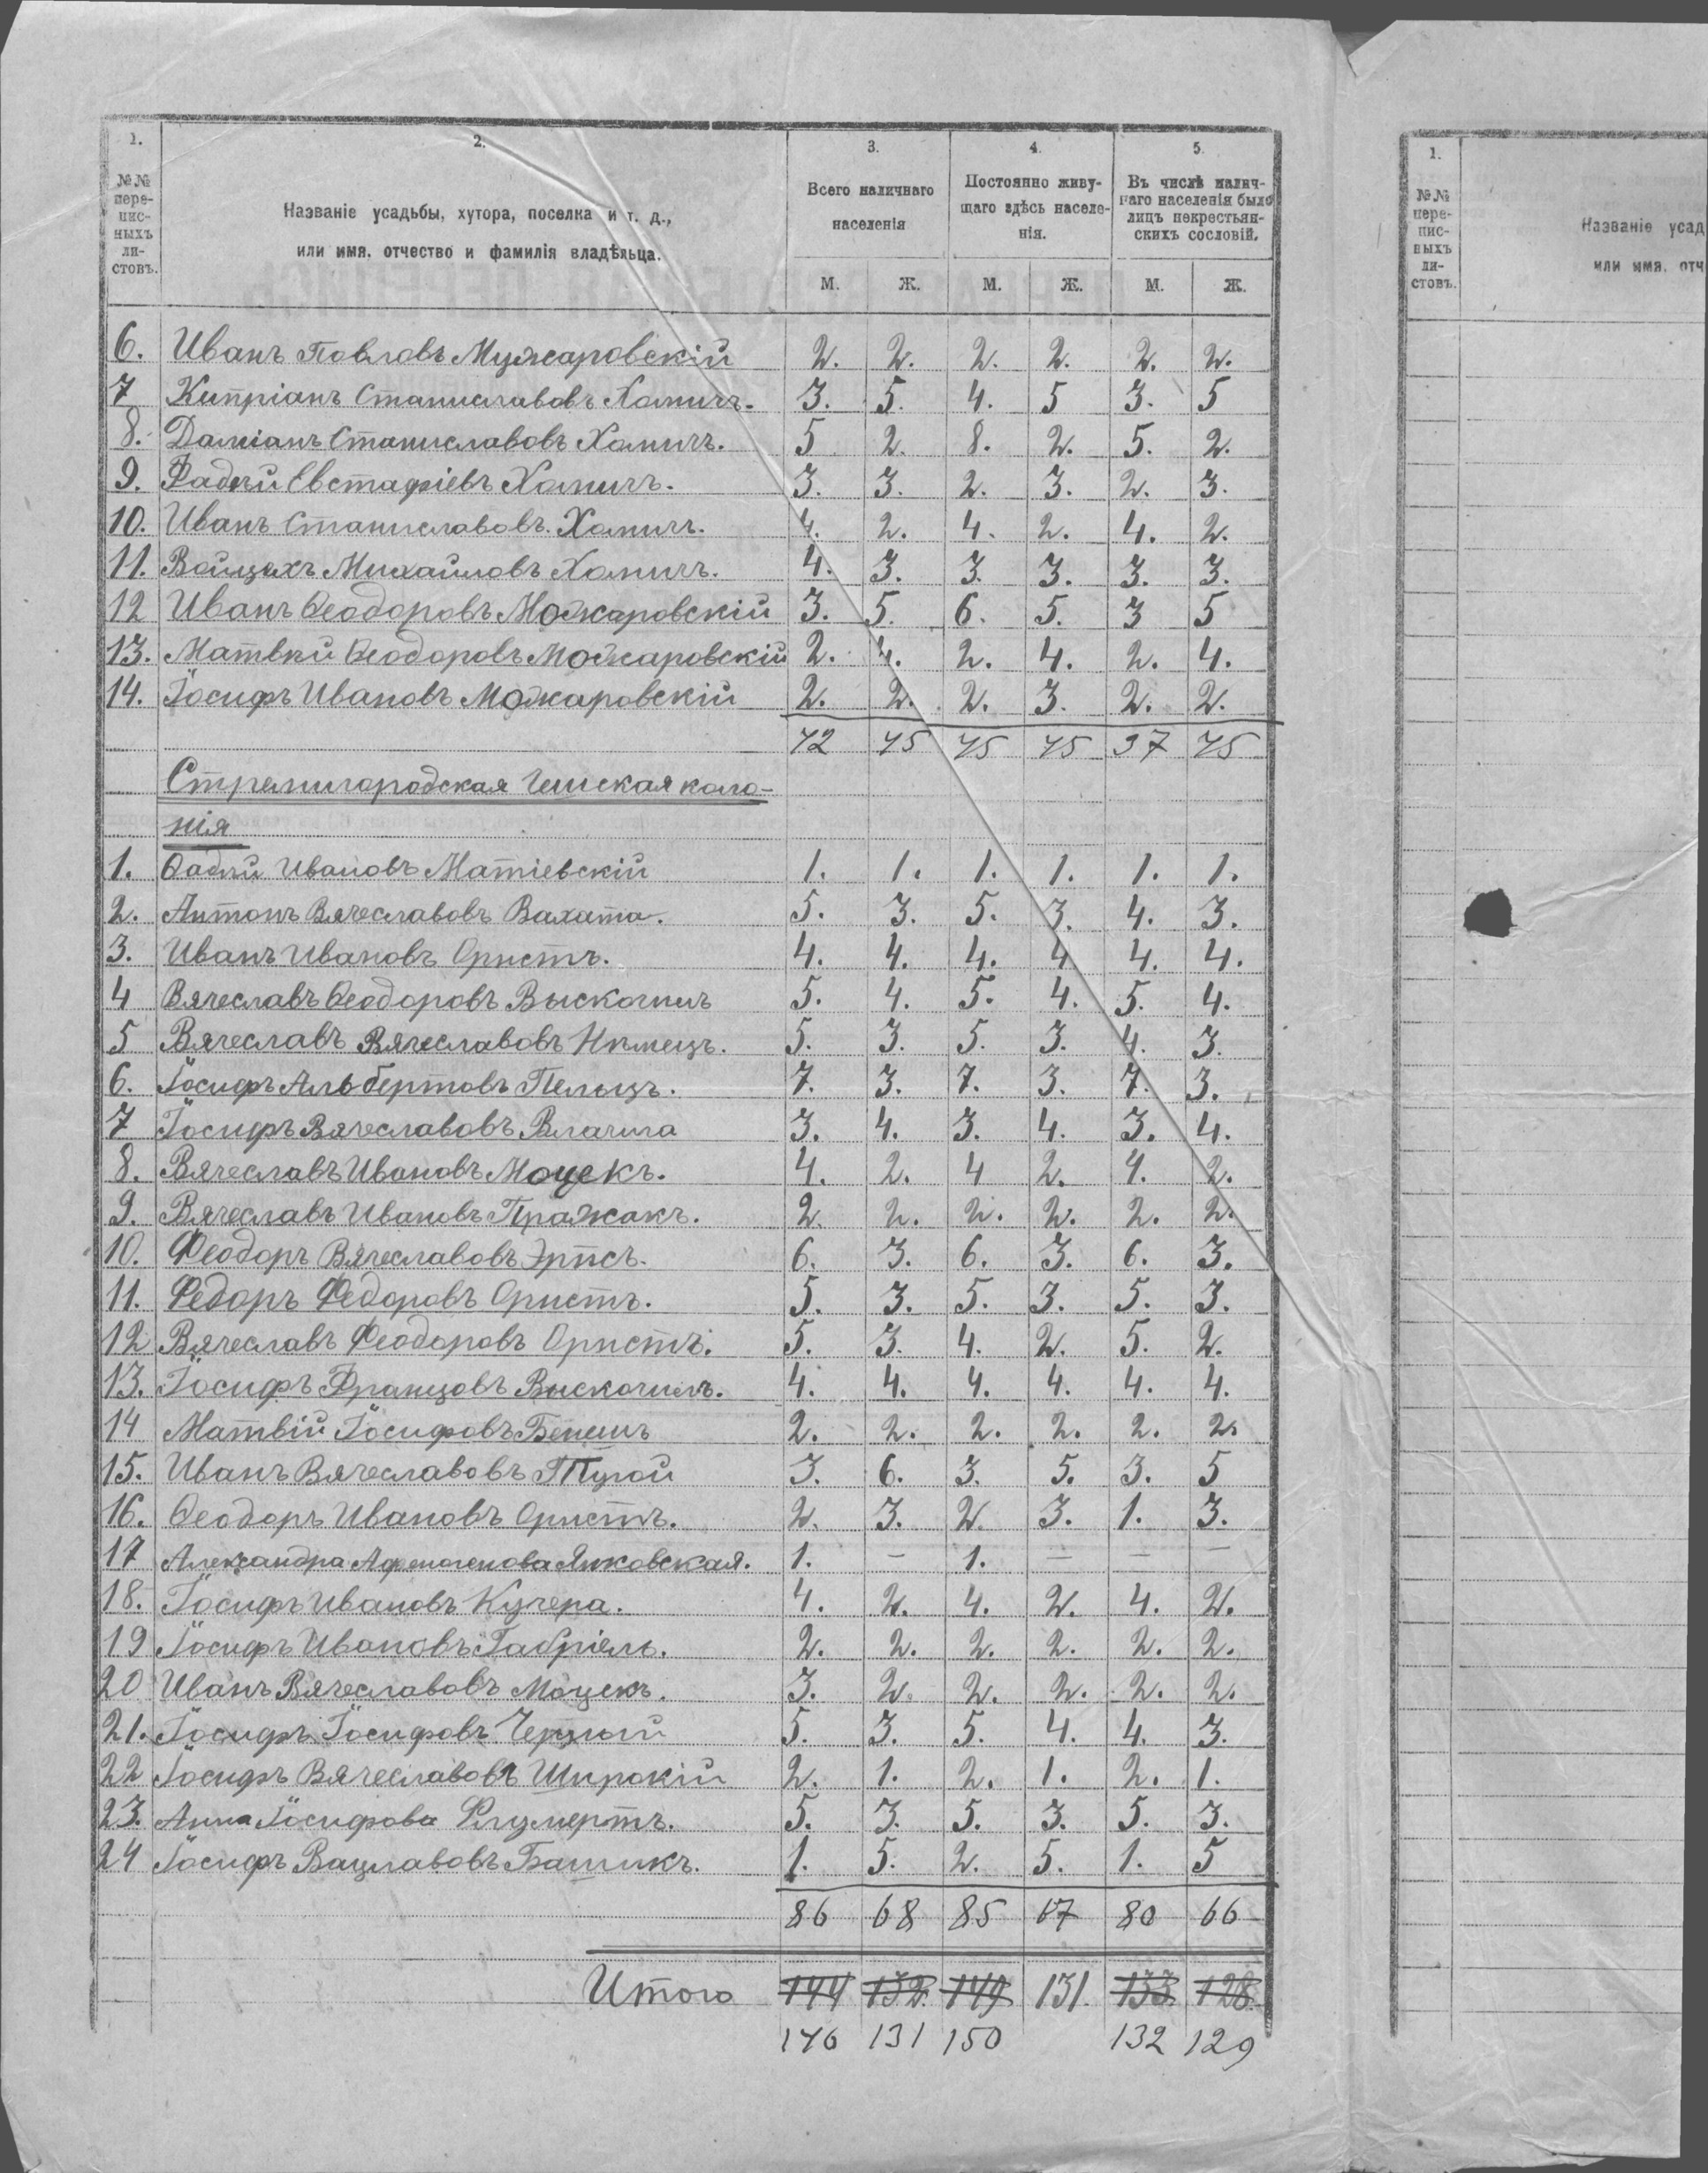 1.
2.
3.
4.
5.
№№ пере-
пис-
ныхъ
ли-
стовъ.
Названіе усадьбы, хутора, поселка и т. д.,
или имя, отчество и фамилія владѣльца.
Всего наличнаго
населенія
Постоянно живу-
щаго здѣсь населе-
нія.
Въ числѣ налич-
наго населенія было
лицъ некрестьян-
скихъ сословій.
М. Ж. М. Ж. М. Ж.
6. Иванъ Павловъ Мужаровскій 2. 2. 2. 2. 2. 2.
7 Кипріанъ Станиславовъ Хомичъ. 3. 5. 4. 5 3. 5
8. Даміанъ Станиславовъ Хомичъ. 5 2. 8. 2. 5. 2.
9. Фадѣй Евстафіевъ Хомичъ. 3. 3. 2. 3. 2. 3.
10. Иванъ Станиславовъ Хомичъ. 4. 2. 4. 2. 4. 2.
11. Войцехъ Михайловъ Хомичъ. 4. 3. 3. 3. 3. 3.
12 Иванъ Ѳеодоровъ Можаровскій 3. 5. 6. 5. 3 5
13. Матвѣй Ѳеодоровъ Можаровскій 2. 4. 2. 4. 2. 4.
14. Іосифъ Ивановъ Можаровскій 2. 2. 2. 3. 2. 2.
45 45
Стремигородская Чешская коло-
нія
1. Ѳадѣй Ивановъ Матіевскій 1. 1. 1. 1. 1. 1.
2. Антонъ Вячеславовъ Вахата. 5. 3. 5. 3. 4. 3.
3. Иванъ Ивановъ Ористъ. 4. 4. 4. 4 4. 4.
4 Вячеславъ Ѳеодоровъ Выскочилъ 5. 4. 5. 4. 5. 4.
5 Вячеславъ Вячеславовъ Нѣмецъ. 5. 3. 5. 3. 4. 3.
6. Іосифъ Альбертовъ Пельцъ. 7. 3. 7. 3. 7. 3.
7 Іосифъ Вячеславовъ Влачига 3. 4. 3. 4. 3. 4.
8. Вячеславъ Ивановъ Моцекъ. 4. 2. 4 2. 4. 2.
9. Вячеславъ Ивановъ Пражакъ. 2. 2. 2. 2. 2. 2.
10. Феодоръ Вячеславовъ 6. 3. 6. 3. 6. 3.
11. Федоръ Федоровъ Ористъ. 5. 3. 5. 3. 5. 3.
12 Вячеславъ Феодоровъ Ористъ. 5. 3. 4. 2. 5. 2.
13. Іосифъ Францовъ Выскочилъ. 4. 4. 4. 4. 4. 4.
14 Матвій Іосифовъ Бенешъ 2. 2. 2. 2. 2. 2.
15. Иванъ Вячеславовъ 3. 6. 3. 5. 3. 5
16. Ѳеодоръ Ивановъ Ористъ. 2. 3. 2. 3. 1. 3.
17 Александра Афиногенова Янковская. 1. – 1. – – –
18. Іосифъ Ивановъ Кучера. 4. 2. 4. 2. 4. 2.
19 Іосифъ Ивановъ Габріель. 2. 2. 2. 2. 2. 2.
20 Иванъ Вячеславовъ Моцекъ. 3. 2. 2. 2. 2. 2.
21. Іосифъ Іосифовъ Черный 5. 3. 5. 4. 4. 3.
22 Іосифъ Вячеславовъ Широкій 2. 1. 2. 1. 2. 1.
23. Анна Іосифова 5. 3. 5. 3. 5. 3.
24 Іосифъ Вацлавовъ Башикъ. 1. 5. 2. 5. 1. 5
86 68 85 67 80 66
Итого 144 132. 149 131. 133. 128.
146 131 150 132 129
1.
№№ пере-
пис-
ныхъ
ли-
стовъ.
Названіе усад
или имя, отч